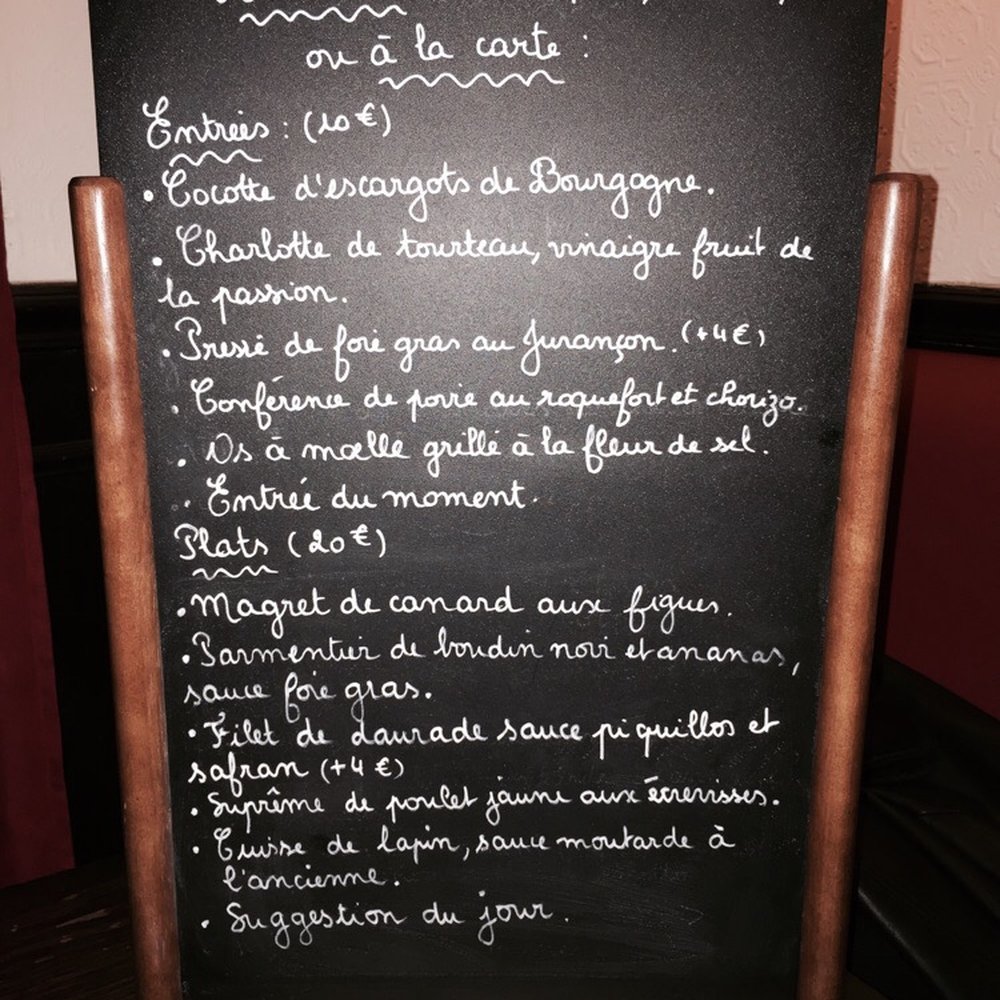 ou à la carte :
Entrées : (10 €)
• Cocotte d'escargots de Bourgogne.
• Charlotte de tourteau, vinaigre fruit de
la passion.
• Pressé de foie gras au Jurançon. (+4€)
• Conférence de poire au roquefort et chorizo.
• Os à moelle grillé à la fleur de sel.
• Entrée du moment.
Plats (20 €)
• Magret de canard aux figues.
• Parmentier de boudin noir et ananas,
sauce foie gras.
• Filet de daurade sauce piquillos et
safran (+4 €)
• Suprême de poulet jaune aux écrevisses.
• Cuisse de lapin, sauce moutarde à
l'ancienne.
• Suggestion du jour.